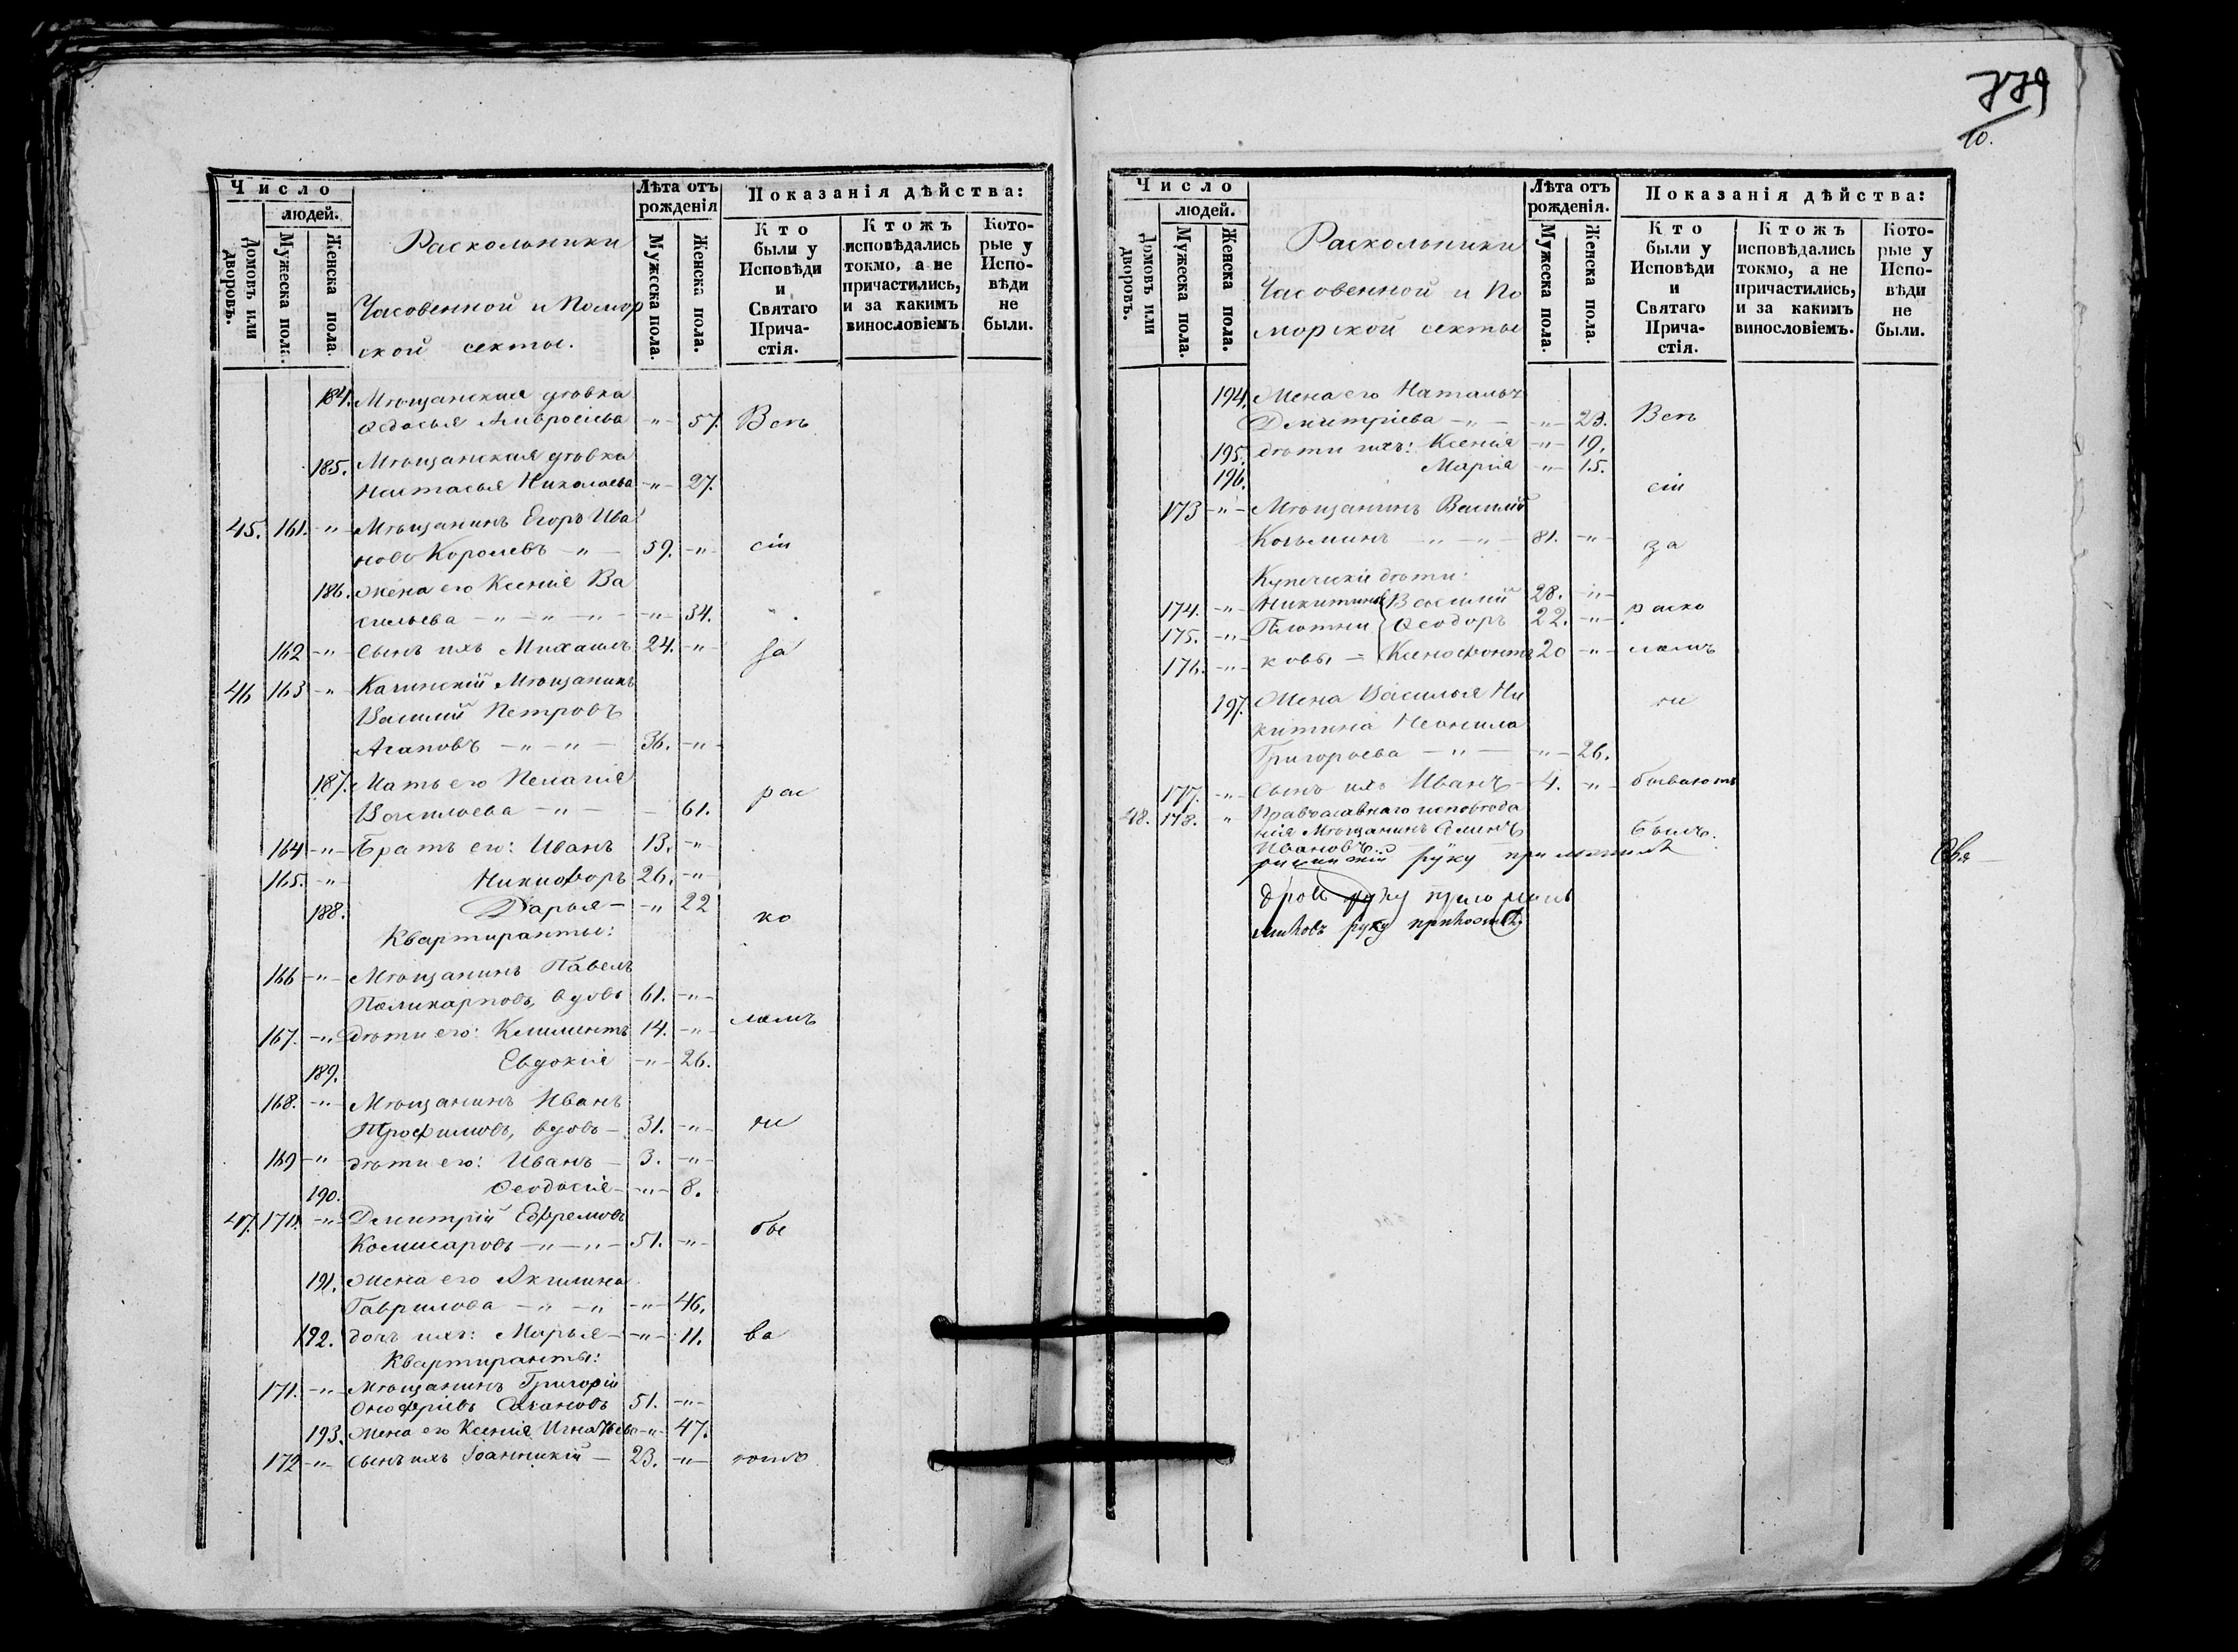 779
10.
Число
людей.
Домовъ или дворовъ.
Мужеска пола.
Женска пола.
Раскольники
Часовенной и Помор
ской секты.
Лѣта отъ рожденія
Мужеска пола.
Женска пола.
Показанія дѣйства:
Кто были у Исповѣди и Святаго Прича-стія.
Ктожъ исповѣдались токмо, а не причастились, и за какимъ винословіемъ
Кото-рые у Испо-вѣди не были.
184. Мѣщанская дѣвка
Ѳедосья Амвросіева -"- 57. Всѣ
185. Мѣщанская дѣвка
Настасья Николаева -"- 27.
45. 161. -"- Мѣщанинъ Егоръ Ива
новъ Королевъ -"- 59. -"- сіи
186. Жена его Ксенія Ва
сильева -"- -"- -"- 34.
162 -"- Сынъ ихъ Михаилъ 24. -"- за
46 163 -"- Каинскій Мѣщанинъ
Василий Петровъ
Агаповъ -"- -"- 36. -"-
187. Мать его Пелагія
Васильева -"- - 61. рас
164 -"- Братъ его: Иванъ 13. -"-
165. -"- Никифоръ 26. -"-
188. Дарья - -"- 22 ко
Квартиранты:
166 -"- Мѣщанинъ Павелъ
Поликарповъ, вдовъ 61. -"-
ломъ
167. -"- дѣти его: Климентъ 14. -"-
189. Евдокія -"- 26.
168. -"- Мѣщанинъ Иванъ
Трофимовъ, вдовъ - 31. -"- не
169 -"- дѣти его: Иванъ - 3. -"-
190. Ѳеодосія - -"- 8.
47. 170. -"- Дмитрій Ефремовъ
Комисаровъ -"- -"- 51. -"- бы
191. Жена его Акилина
Гаврилова -"- -"- -"- 46.
192. дочь ихъ: Марья - -"- 11. ва
Квартиранты:
171. -"- Мѣщанинъ Григорій
Онофріевъ 51. -"-
193. Жена его Ксенія Игнатьева -"- 47.
172 -"- Сынъ ихъ Іоанникій - 23. -"- ютъ
Число
людей.
Домовъ или дворовъ.
Мужеска пола.
Женска пола.
Раскольники
Часовенной и По
морской секты
Лѣта отъ рожденія.
Мужеска пола.
Женска пола
Показанія дѣйства:
Кто были у Исповѣди и Святаго Прича-стія.
Ктожъ исповѣдались токмо, а не причастились, и за какимъ винословіемъ.
Кото-рые у Испо-вѣди не были.
194. Жена его Наталья
Дмитріева -"- -"- 23. Всѣ
195. дѣти ихъ: Ксенія -"- 19.
196. Марія -"- 15.
сіи
173 -"- Мѣщанинъ Василій
Козьминъ -"- -"- 81. -"- за
Купеческіе дѣти:
174. -"- Никитины Василий 28. -"- раско
175. -"- Плотни Ѳеодоръ 22. -"-
176. -"- ковы - Ксенофонтъ 20 -"- ломъ
197. Жена Василья Ни не
китина Неонила
Григорьева -"- -"- 26.
177. -"- Сынъ ихъ Иванъ - 4. -"- бываютъ
48. 178. " Православнаго исповѣда
нія Мѣщанинъ былъ.
Ивановъ
руку приложилъ
руку приложилъ
руку приложилъ
Свя